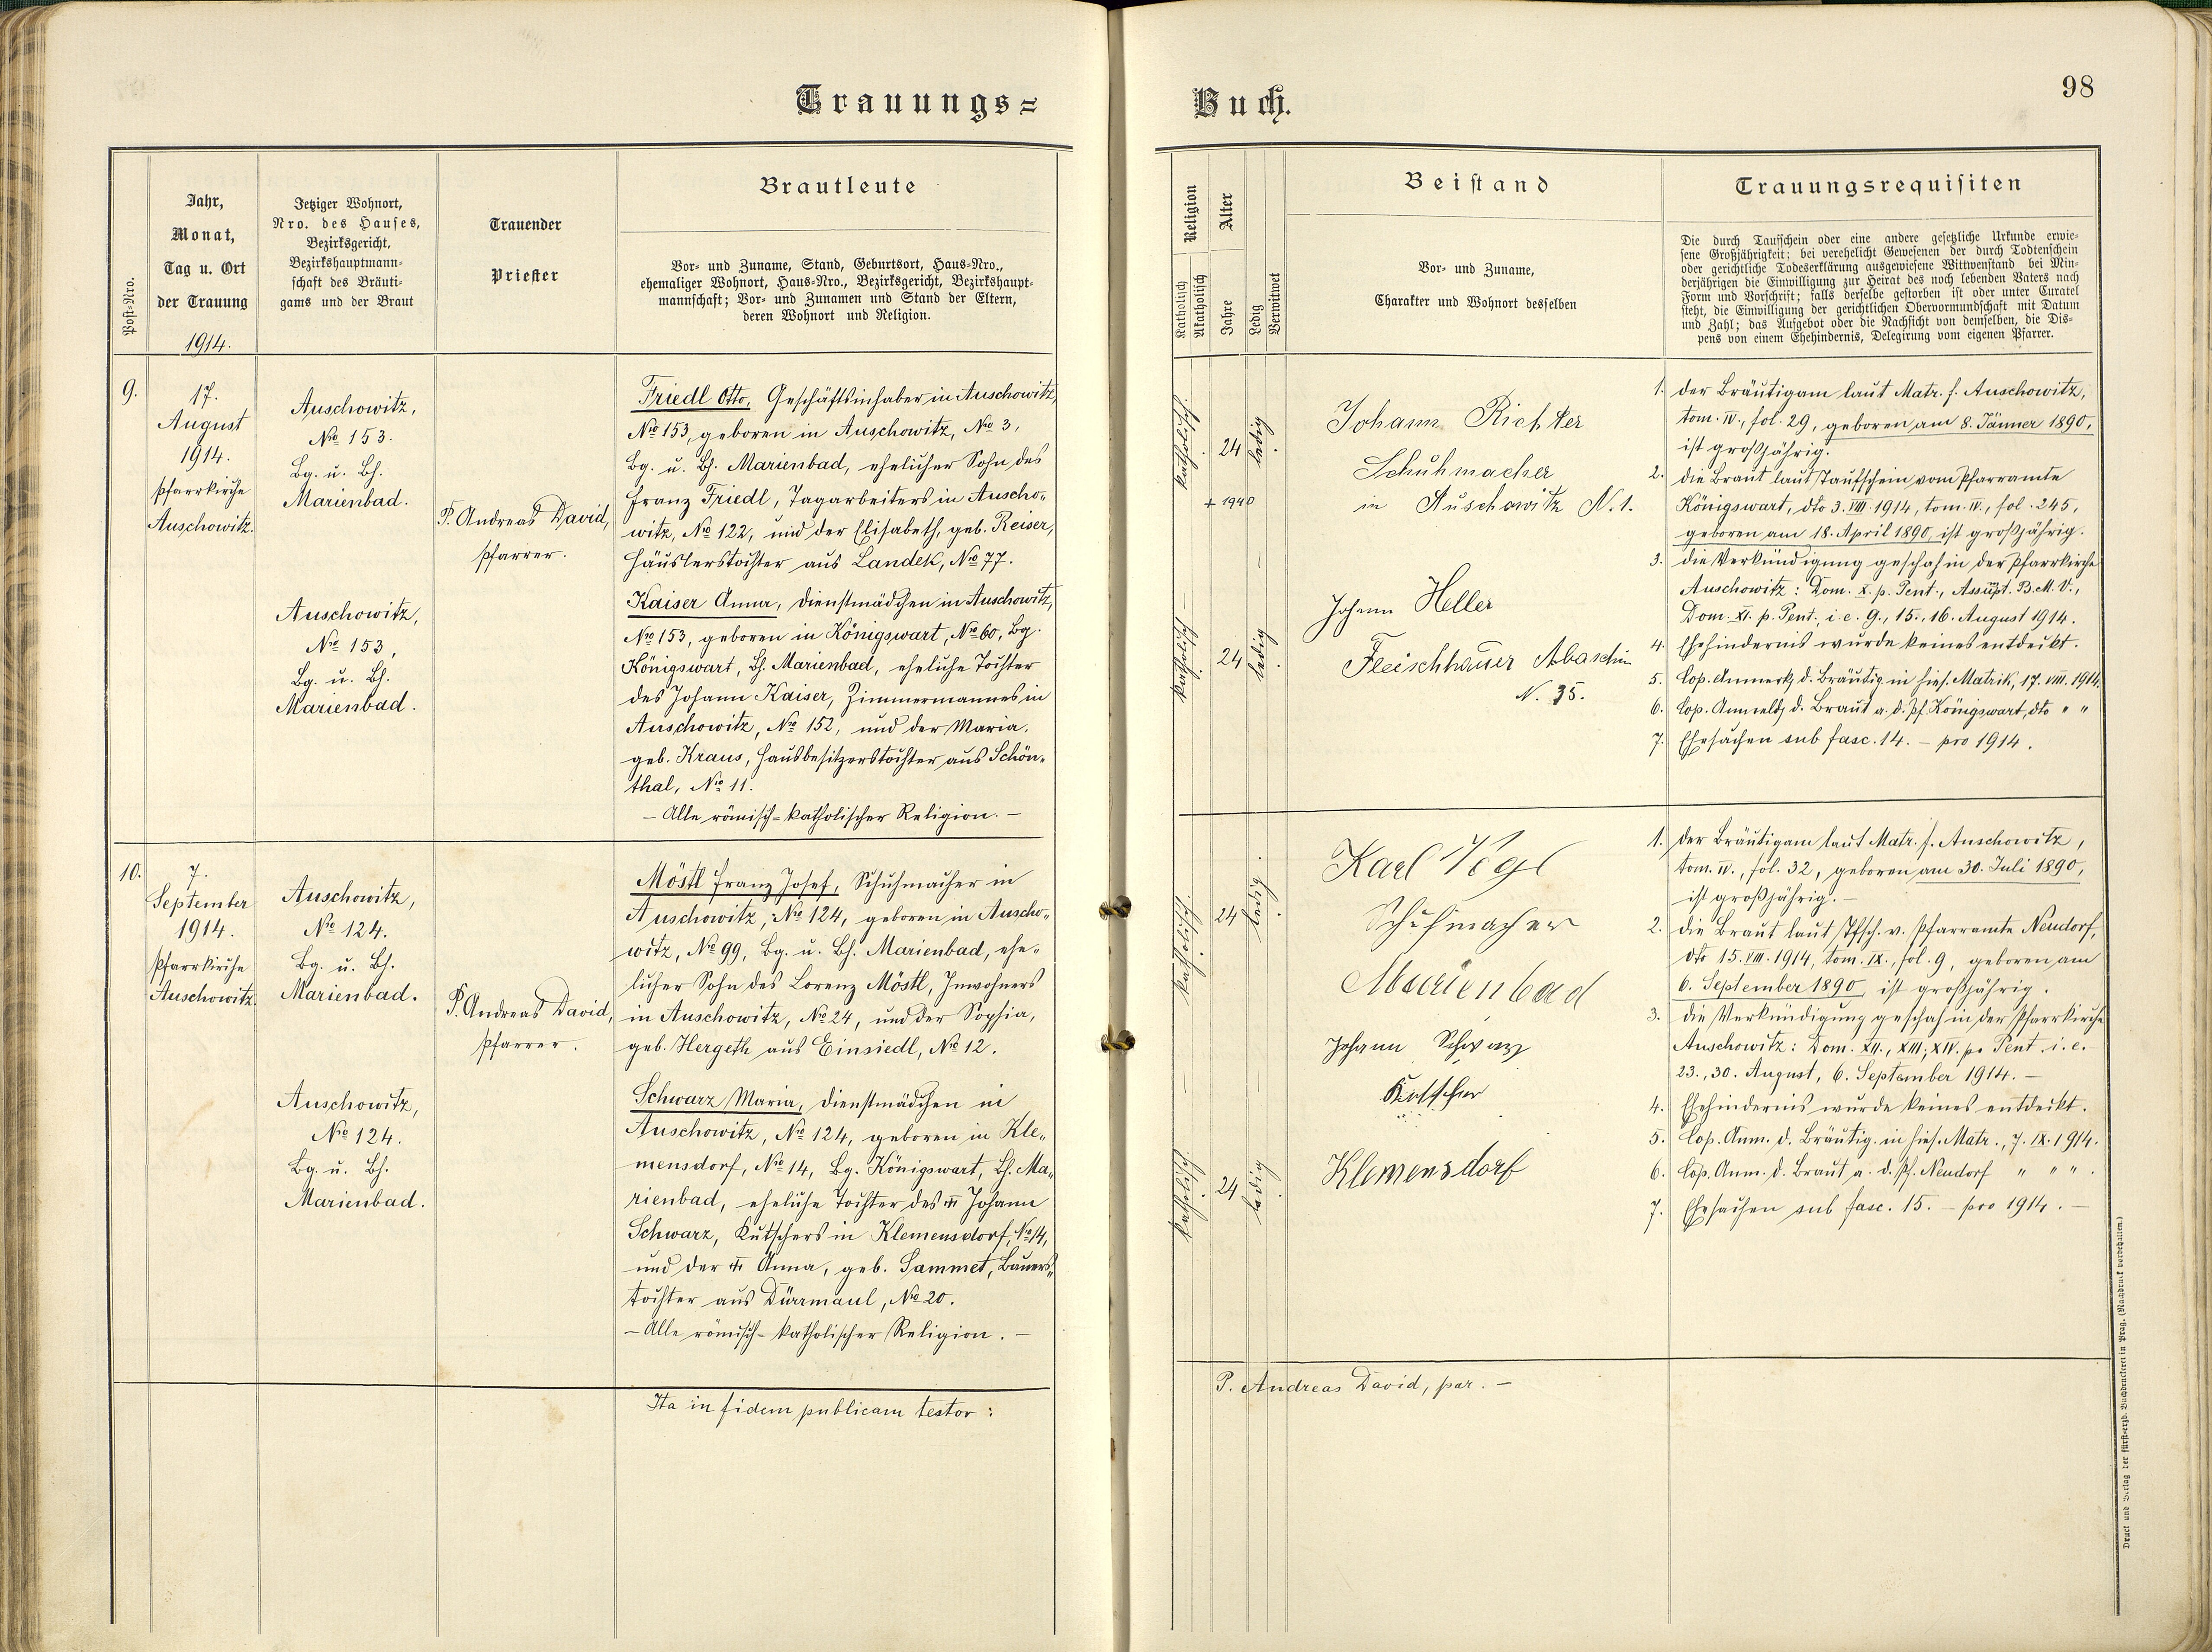 Trauungs=
Buch.
98
Post-Nro.
Jahr,
Monat,
Tag u. Ort
der Trauung
1914.
Jetziger Wohnort,
Nro. des Hauses,
Bezirksgericht,
Bezirkshauptmann-
schaft des Bräuti-
gams und der Braut
Trauender
Priester
Brautleute
Vor- und Zuname, Stand, Geburtsort, Haus-Nro.,
ehemaliger Wohnort, Haus-Nro., Bezirksgericht, Bezirkshaupt-
mannschaft; Vor- und Zunamen und Stand der Eltern,
deren Wohnort und Religion.
Religion
Katholisch
Akatholisch
Alter
Jahre
Ledig
Verwitwet
Beistand
Vor- und Zuname,
Charakter und Wohnort desselben
Trauungsrequisiten
Die durch Taufschein oder eine andere gesetzliche Urkunde erwie-
sene Großjährigkeit; bei verehelicht Gewesenen der durch Todtenschein
oder gerichtliche Todeserklärung ausgewiesene Wittwenstand bei Min-
derjährigen die Einwilligung zur Heirat des noch lebenden Vaters nach
Form und Vorschrift; falls derselbe gestorben ist oder unter Curatel
steht, die Einwilligung der gerichtlichen Obervormundschaft mit Datum
und Zahl; das Aufgebot oder die Nachsicht von demselben, die Dis-
pens von einem Ehehindernis, Delegirung vom eigenen Pfarrer.
9.
17.
August
1914.
Pfarrkirche
Auschowitz.
Auschowitz,
No 153.
Bg. u. Bh.
Marienbad.
Auschowitz,
No 153,
Bg. u. Bh.
Marienbad.
P. Andreas David,
Pfarrer.
Friedl Otto, Geschäftsinhaber in Auschowitz,
No 153, geboren in Auschowitz, No 3,
Bg. u. Bh. Marienbad, ehelicher Sohn des
Franz Friedl, Tagarbeiters in Auscho„
witz, No 122, und der Elisabeth, geb. Reiser,
Häuslerstochter aus Landek, No 77.
Kaiser Anna, Dienstmädchen in Auschowitz,
No 153, geboren in Königswart, No 60, Bg.
Königswart, Bh. Marienbad, eheliche Tochter
des Johann Kaiser, Zimmermannes in
Auschowitz, No 152, und der Maria,
geb. Kraus, Hausbesitzerstochter aus Schön„
thal, No 11.
— Alle römisch=katholischer Religion. —
katholisch.
24
ledig
+ 1940
katholisch
24
ledig
Johann Richter
Schuhmacher
in Auschowitz N. 1.
Johann Heller
Fleischhauer Abaschin
N. 35.
1. der Bräutigam laut Matr. f. Auschowitz,
tom. IV., fol. 29, geboren am 8. Jänner 1890,
ist großjährig.
2. die Braut laut Taufschein vom Pfarramte
Königswart, dto 3. VIII. 1914, tom. IV., fol. 245,
geboren am 18. April 1890, ist großjährig.
3. die Verkündigung geschah in der Pfarrkirche
Auschowitz: Dom. X. p. Pent., Assupt. B.M.V.,
Dom. XI. p. Pent., i. e. 9., 15., 16. August 1914.
4. Ehehindernis wurde keines entdeckt.
5. Cop. Anmerkg. d. Bräutig. in hies. Matrik, 17. VIII. 1914.
6. Cop. Anmeldg. d. Braut a. d. Pf. Königswart, dto " "
7. Ehesachen sub fasc. 14. – pro 1914.
10.
7.
September
1914.
Pfarrkirche
Auschowitz.
Auschowitz,
No 124.
Bg. u. Bh.
Marienbad.
Auschowitz,
No 124.
Bg. u. Bh.
Marienbad.
P. Andreas David,
Pfarrer.
Möstl Franz Josef, Schuhmacher in
Auschowitz, No 124, geboren in Auscho„
witz, No 99, Bg. u. Bh. Marienbad, ehe„
licher Sohn des Lorenz Möstl, Inwohners
in Auschowitz, No 24, und der Sophia,
geb. Hergeth aus Einsiedl, No 12.
Schwarz Maria, Dienstmädchen in
Auschowitz, No 124, geboren in Kle„
mensdorf, No 14, Bg. Königswart, Bh. Ma„
rienbad, eheliche Tochter des Johann
Schwarz, Kutschers in Klemensdorf, No 14,
und der Anna, geb. Sammet, Bauers„
tochter aus Dürrmaul, No 20.
— Alle römisch=katholischer Religion. —
katholisch.
24
ledig.
katholisch.
24
ledig
Karl Vogl
Schuhmacher
Marienbad
Johann Schwarz
Kutscher
Klemensdorf
1. der Bräutigam laut Matr. f. Auschowitz,
tom. IV., fol. 32, geboren am 30. Juli 1890,
ist großjährig. –
2. die Braut laut Tfsch. v. Pfarramte Neudorf,
dto 15. VIII. 1914, tom. IX., fol. 9, geboren am
6. September 1890, ist großjährig.
3. die Verkündigung geschah in der Pfarrkirche
Auschowitz: Dom. XII., XIII., XIV. p. Pent. i. e.
23., 30. August, 6. September 1914. –
4. Ehehindernis wurde keines entdeckt.
5. Cop. Anm. d. Bräutig. in hies. Matr., 7. IX. 1914.
6. Cop. Anm. d. Braut a. d. Pf. Neudorf " " ".
7. Ehesachen sub fasc. 15. – pro 1914. –
Ita in fidem publicam testor:
P. Andreas David, par. –
Druck und Verlag der fürst-erzb. Buchdruckerei in Prag. (Nachdruck vorbehalten.)